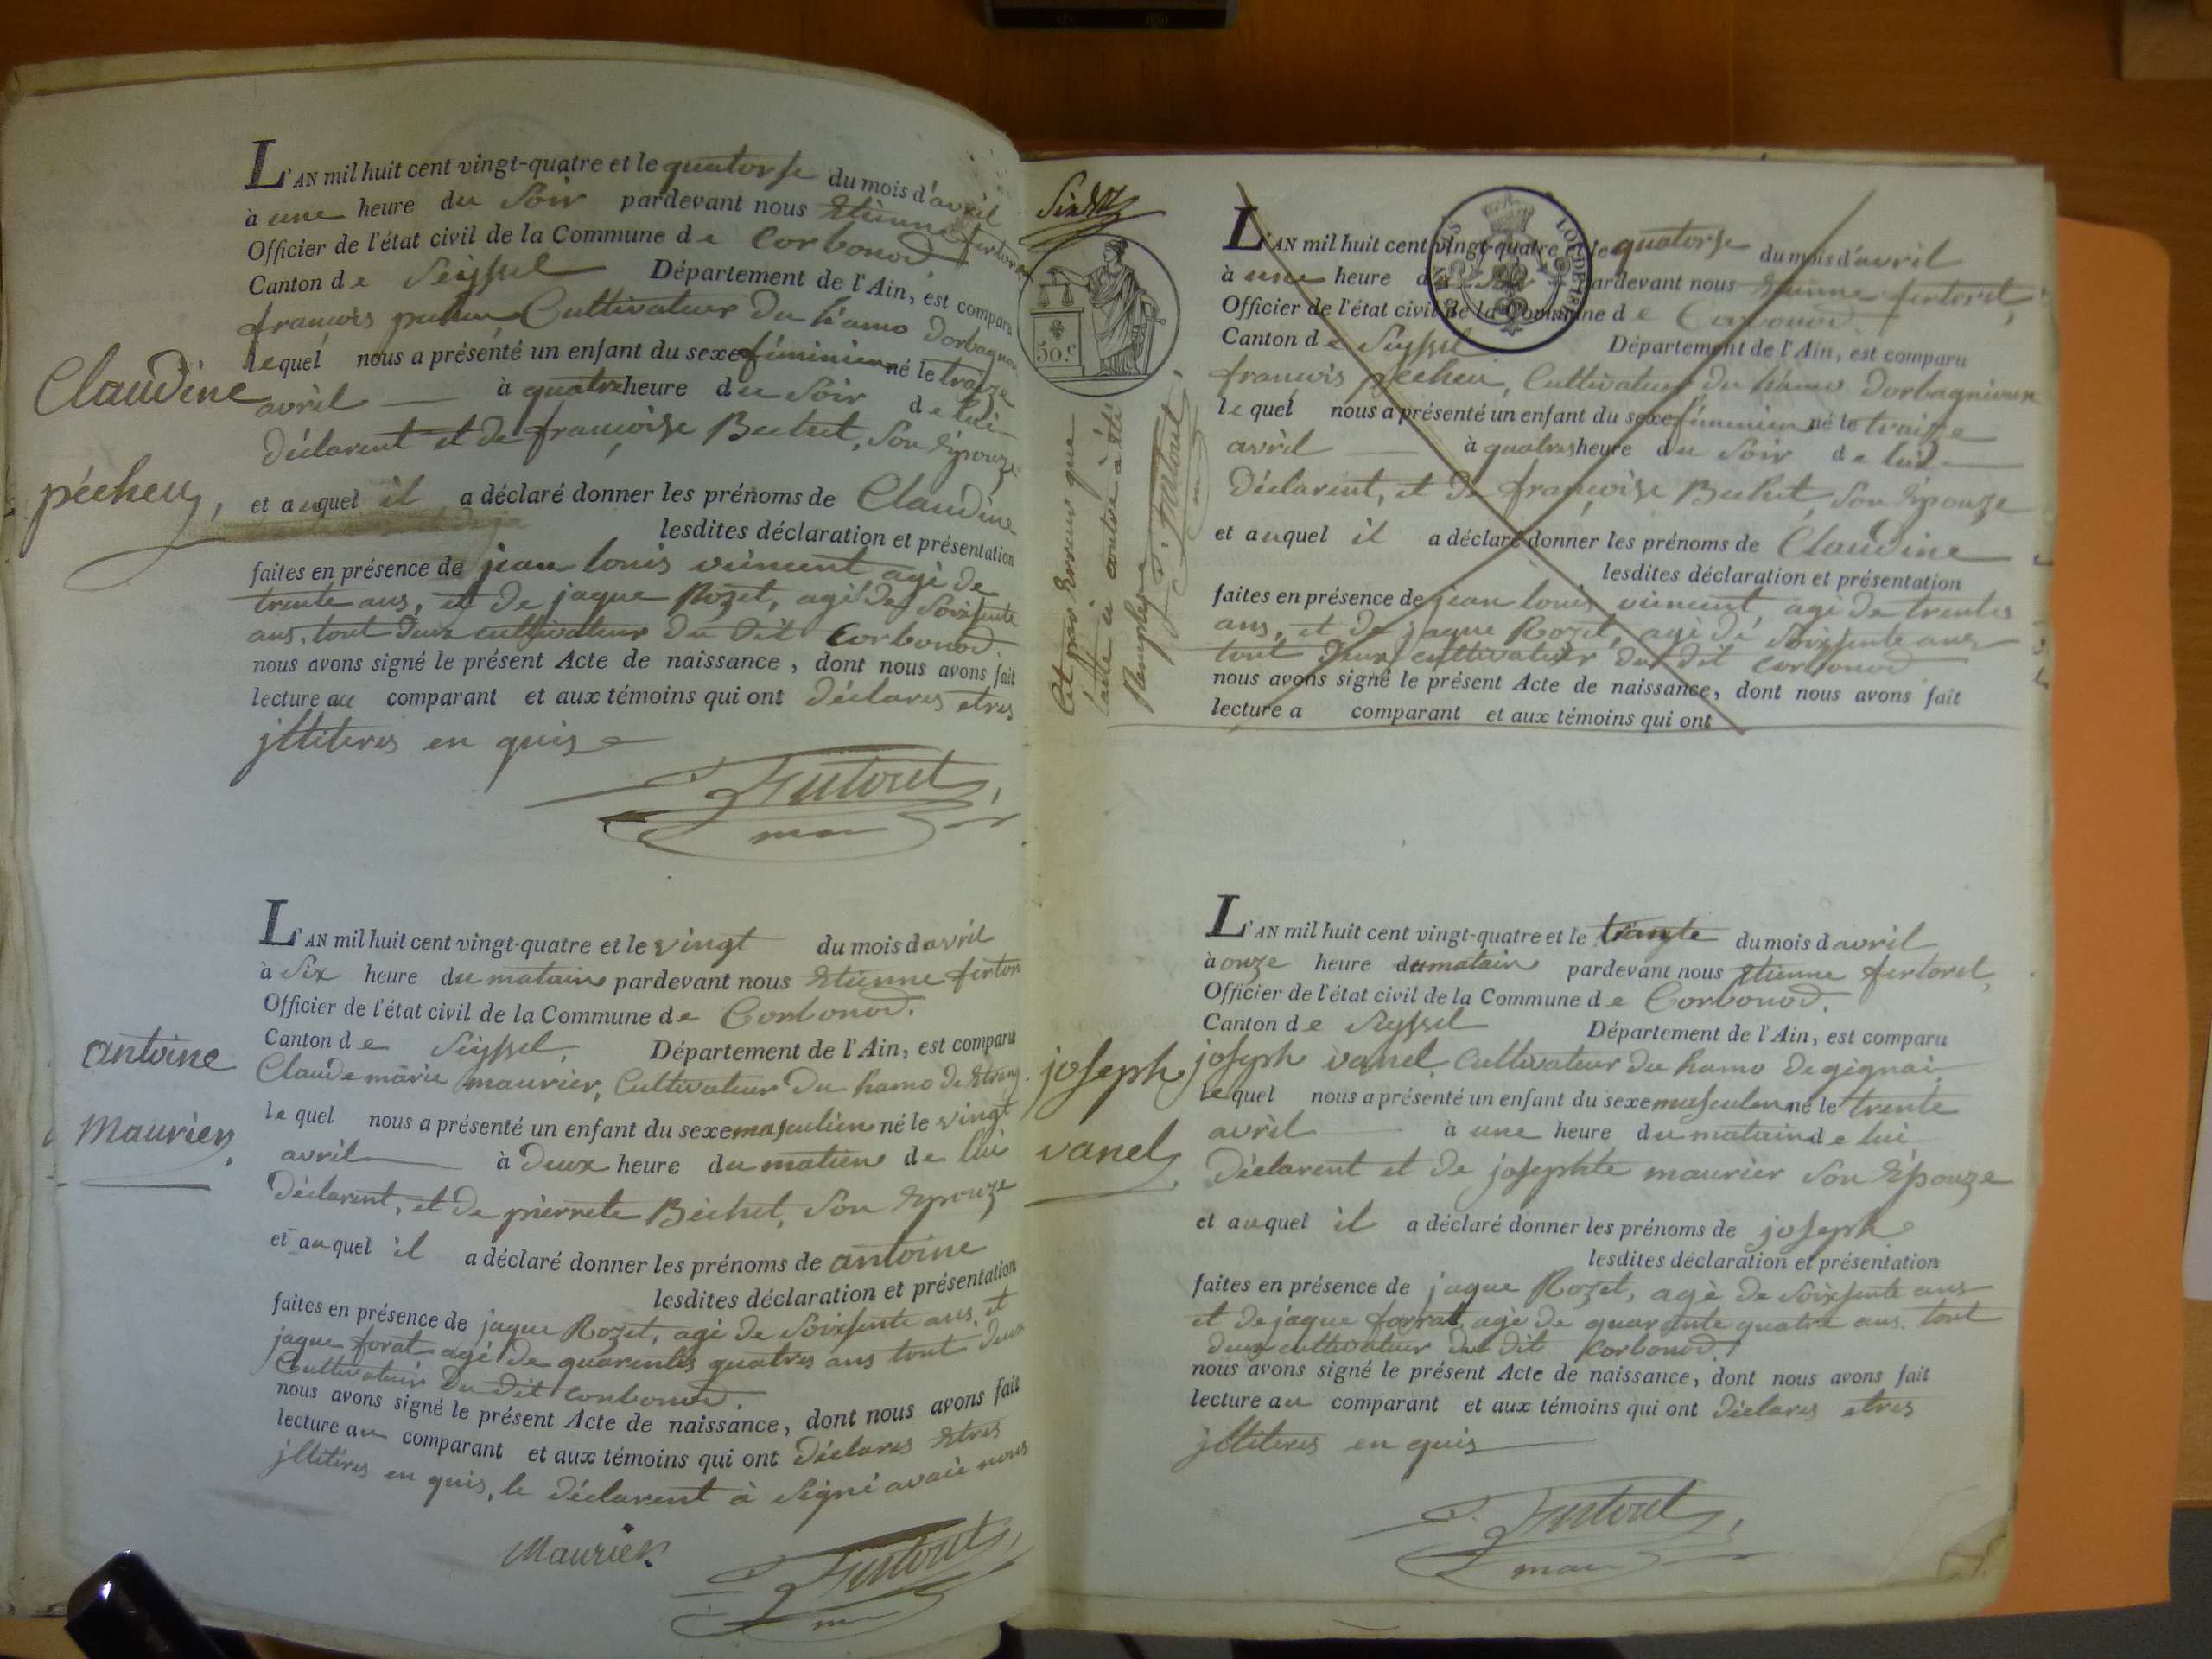 L'AN mil huit cent vingt-quatre et le quatorse du mois d'avril
à une heure du Soir pardevant nous Etienne fertoret
Officier de l'état civil de la Commune de Corbonod
Canton de Seijssel Département de l'Ain, est comparu
francois pecheu Cultivateur du hamo Dorbagnoux
lequel nous a présenté un enfant du sexe féminien né le traize
avril à quatre heure du Soir de lui
Déclarent et de françoise Bechet, Son Epouze
et auquel il a déclaré donner les prénoms de Claudine
lesdites déclaration et présentation
faites en présence de jean louis vincent agé de
trente ans, et de jaque Rozet, agé de Soixsente
ans, tout deux cultivateur du dit Corbonod.
nous avons signé le présent Acte de naissance, dont nous avons fait
lecture au comparant et aux témoins qui ont Déclares etres
jlliteres en quis
Claudine
pécheu,
L'AN mil huit cent vingt-quatre et le vingt du mois d avril
à Six heure du matain pardevant nous Etienne fertore
Officier de l'état civil de la Commune de Corbonod.
Canton de Seijssel, Département de l'Ain, est comparu
Claude marie maurier, Cultivateur du hamo de
le quel nous a présenté un enfant du sexe masculien né le vingt
avril à deux heure du matien de lui
Déclarent, et de pierrete Béchet, Son Epouze
et auquel il a déclaré donner les prénoms de antoine
lesdites déclaration et présentation
faites en présence de jaque Rozet, agé de Soixsente ans, et
jaque forat agé de quarentes quatres ans tout deux
Cultivateur du dit Corbonod.
nous avons signé le présent Acte de naissance, dont nous avons fait
lecture au comparant et aux témoins qui ont Déclares Etres
jlliteres en quis, le Déclarent à Signé avaic nous
antoine
Maurier,
Maurier
50.c
Cet par Erreur que
l'acte ci contre à été
Remplier
L'AN mil huit cent vingt-quatre le quatorse du mois d'avril
à une heure du Soir pardevant nous Etienne fertoret,
Officier de l'état civil de la Commune de Corbonod
Canton de Seyssel Département de l'Ain, est comparu
francois pecheu, Cultivateur du hamo Dorbagnioux
le quel nous a présenté un enfant du sexe féminien né le traize
avril à quatres heure du Soir de lui
Déclarent, et de françoise Bechet, Son Epouze
et auquel il a déclaré donner les prénoms de Claudine
lesdites déclaration et présentation
faites en présence de jean louis vincent agé de trentes
ans, et de jaque Rozet, agé de Soixsente ans
tout deux cultivateur du dit Corbonod
nous avons signé le présent Acte de naissance, dont nous avons fait
lecture a comparant et aux témoins qui ont
L'AN mil huit cent vingt-quatre et le trente du mois d avril
à onze heure du matain pardevant nous Etienne fertoret,
Officier de l'état civil de la Commune de Corbonod.
Canton de Seyssel Département de l'Ain, est comparu
joseph vanel Cultivateur du hamo de gignai
lequel nous a présenté un enfant du sexe masculen né le trente
avril à une heure du matain de lui
Déclarent et de josephte maurier Son Epouze
et auquel il a déclaré donner les prénoms de joseph
lesdites déclaration et présentation
faites en présence de jaque Rozet, agé de Soixsente ans
et de jaque forrat agé de quarante quatre ans tout
deux cultivateur du dit Corbonod.
nous avons signé le présent Acte de naissance, dont nous avons fait
lecture au comparant et aux témoins qui ont Déclares etres
jlliteres en quis
joseph
vanel